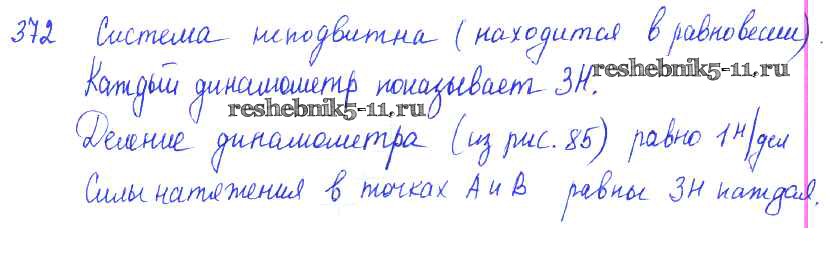 372 Система неподвижна (находится в равновесии).
Каждый динамометр показывает 3Н.
reshebnik5-11.ru
reshebnik5-11.ru
Деление динамометра (из рис. 85) равно 1 Н/дел
Силы натяжения в точках А и В равны 3Н каждая.